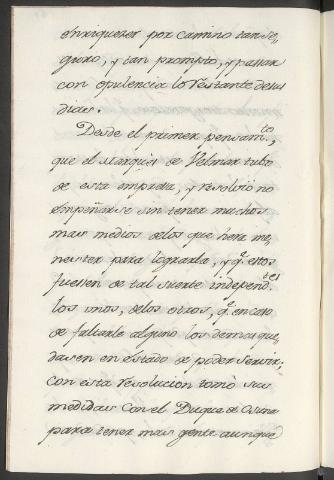 enriquezer por camino tan se=
guro, y tan prompto, y passar
con opulencia lo restante de sus
dias.
Desde el primer pensam.to,
que el Marques de Velmar tubo
de esta empresa, y resolvio no
empeñarse sin tener muchos
mas medios de los que hera me,
nester para lograrla, y q.e estos
fuessen de tal suerte independ.tes
los unos, de los otros, q.e en caso
de faltarle alguno los demas que,
dassen en estado de poder servir;
con esta resolucion tomò sus
medidas con el Duque de Osuna
para tener mas gente aunque